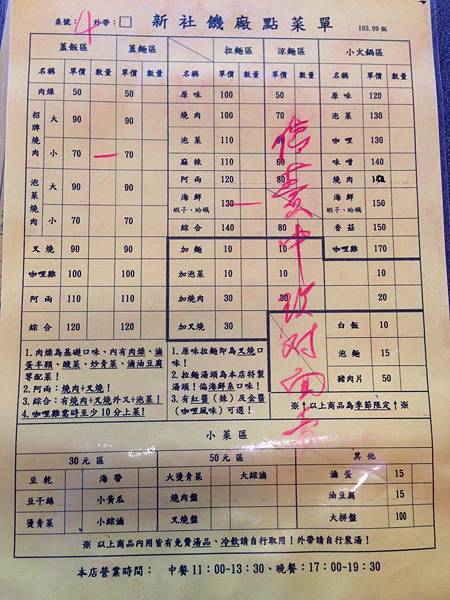 桌號: 4 外帶:□ 新社饑廠點菜單 103.09版
蓋飯區 蓋麵區 拉麵區 涼麵區 小火鍋區
名稱 單價 數量 單價 數量 名稱 單價 數量 單價 數量 名稱 單價 數量
肉燥 50 50 原味 100 50 原味 120
招牌燒肉 大 90 90 燒肉 100 70 泡菜 130
泡菜 110 咖哩 130
小 70 一 70 麻辣 110 60 味噌 140
泡菜燒肉 大 90 90 阿兩 120 80 燒肉
海鮮 蝦子、蛤蠣 130 一 海鮮 蝦子、蛤蠣 150
小 70 70 綜合 140 80 香菇 150
叉燒 90 90 加麵 10 10 咖哩雞 170
咖哩雞 90 90 加泡菜 10 10 10
阿兩 90 90 加燒肉 30 30 20
綜合 120 120 加叉燒 30 白飯 10
泡麵 15
豬肉片 50
1.肉燥為基礎口味、內有肉燥、滷
蛋半顆、酸菜、炒青菜、滷油豆腐
等配菜!
2.阿兩:燒肉+叉燒!
3.綜合:有燒肉+叉燒外又+泡菜!
4.咖哩雞需時至少10分上菜!
1.原味拉麵即為叉燒口
味!
2.拉麵湯頭為本店特製
湯頭!偏海鮮系口味!
3.有紅醬(辣)及金醬
(咖哩風味)可選!
※↑以上商品為季節限定↑※
小菜區
30元區 50元區 其他
豆乾 海帶 大燙青菜 大綜滷 滷蛋 15
豆干絲 小黃瓜 燒肉盤 油豆腐 15
燙青菜 小綜滷 叉燒盤 大拼盤 100
※以上商品內用皆有免費湯品、冷飲請自行取用!外帶請自行裝湯!
本店營業時間: 中餐11:00-13:30、晚餐:17:00-19:30